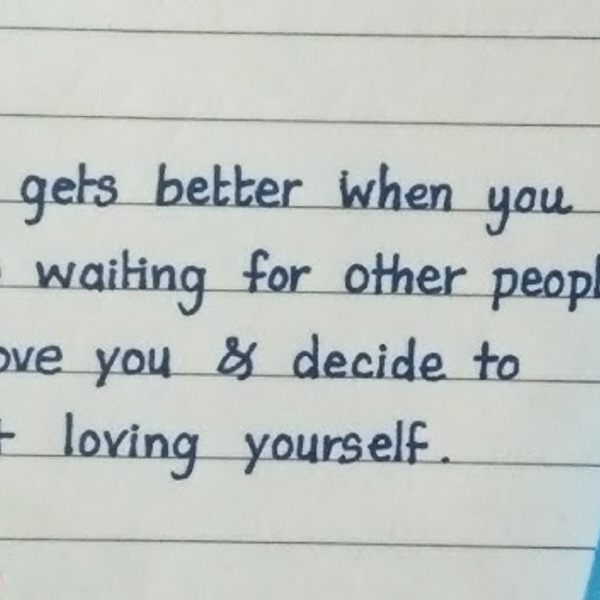 gets better when you
waiting for other peopl
ove you & decide to
loving yourself.